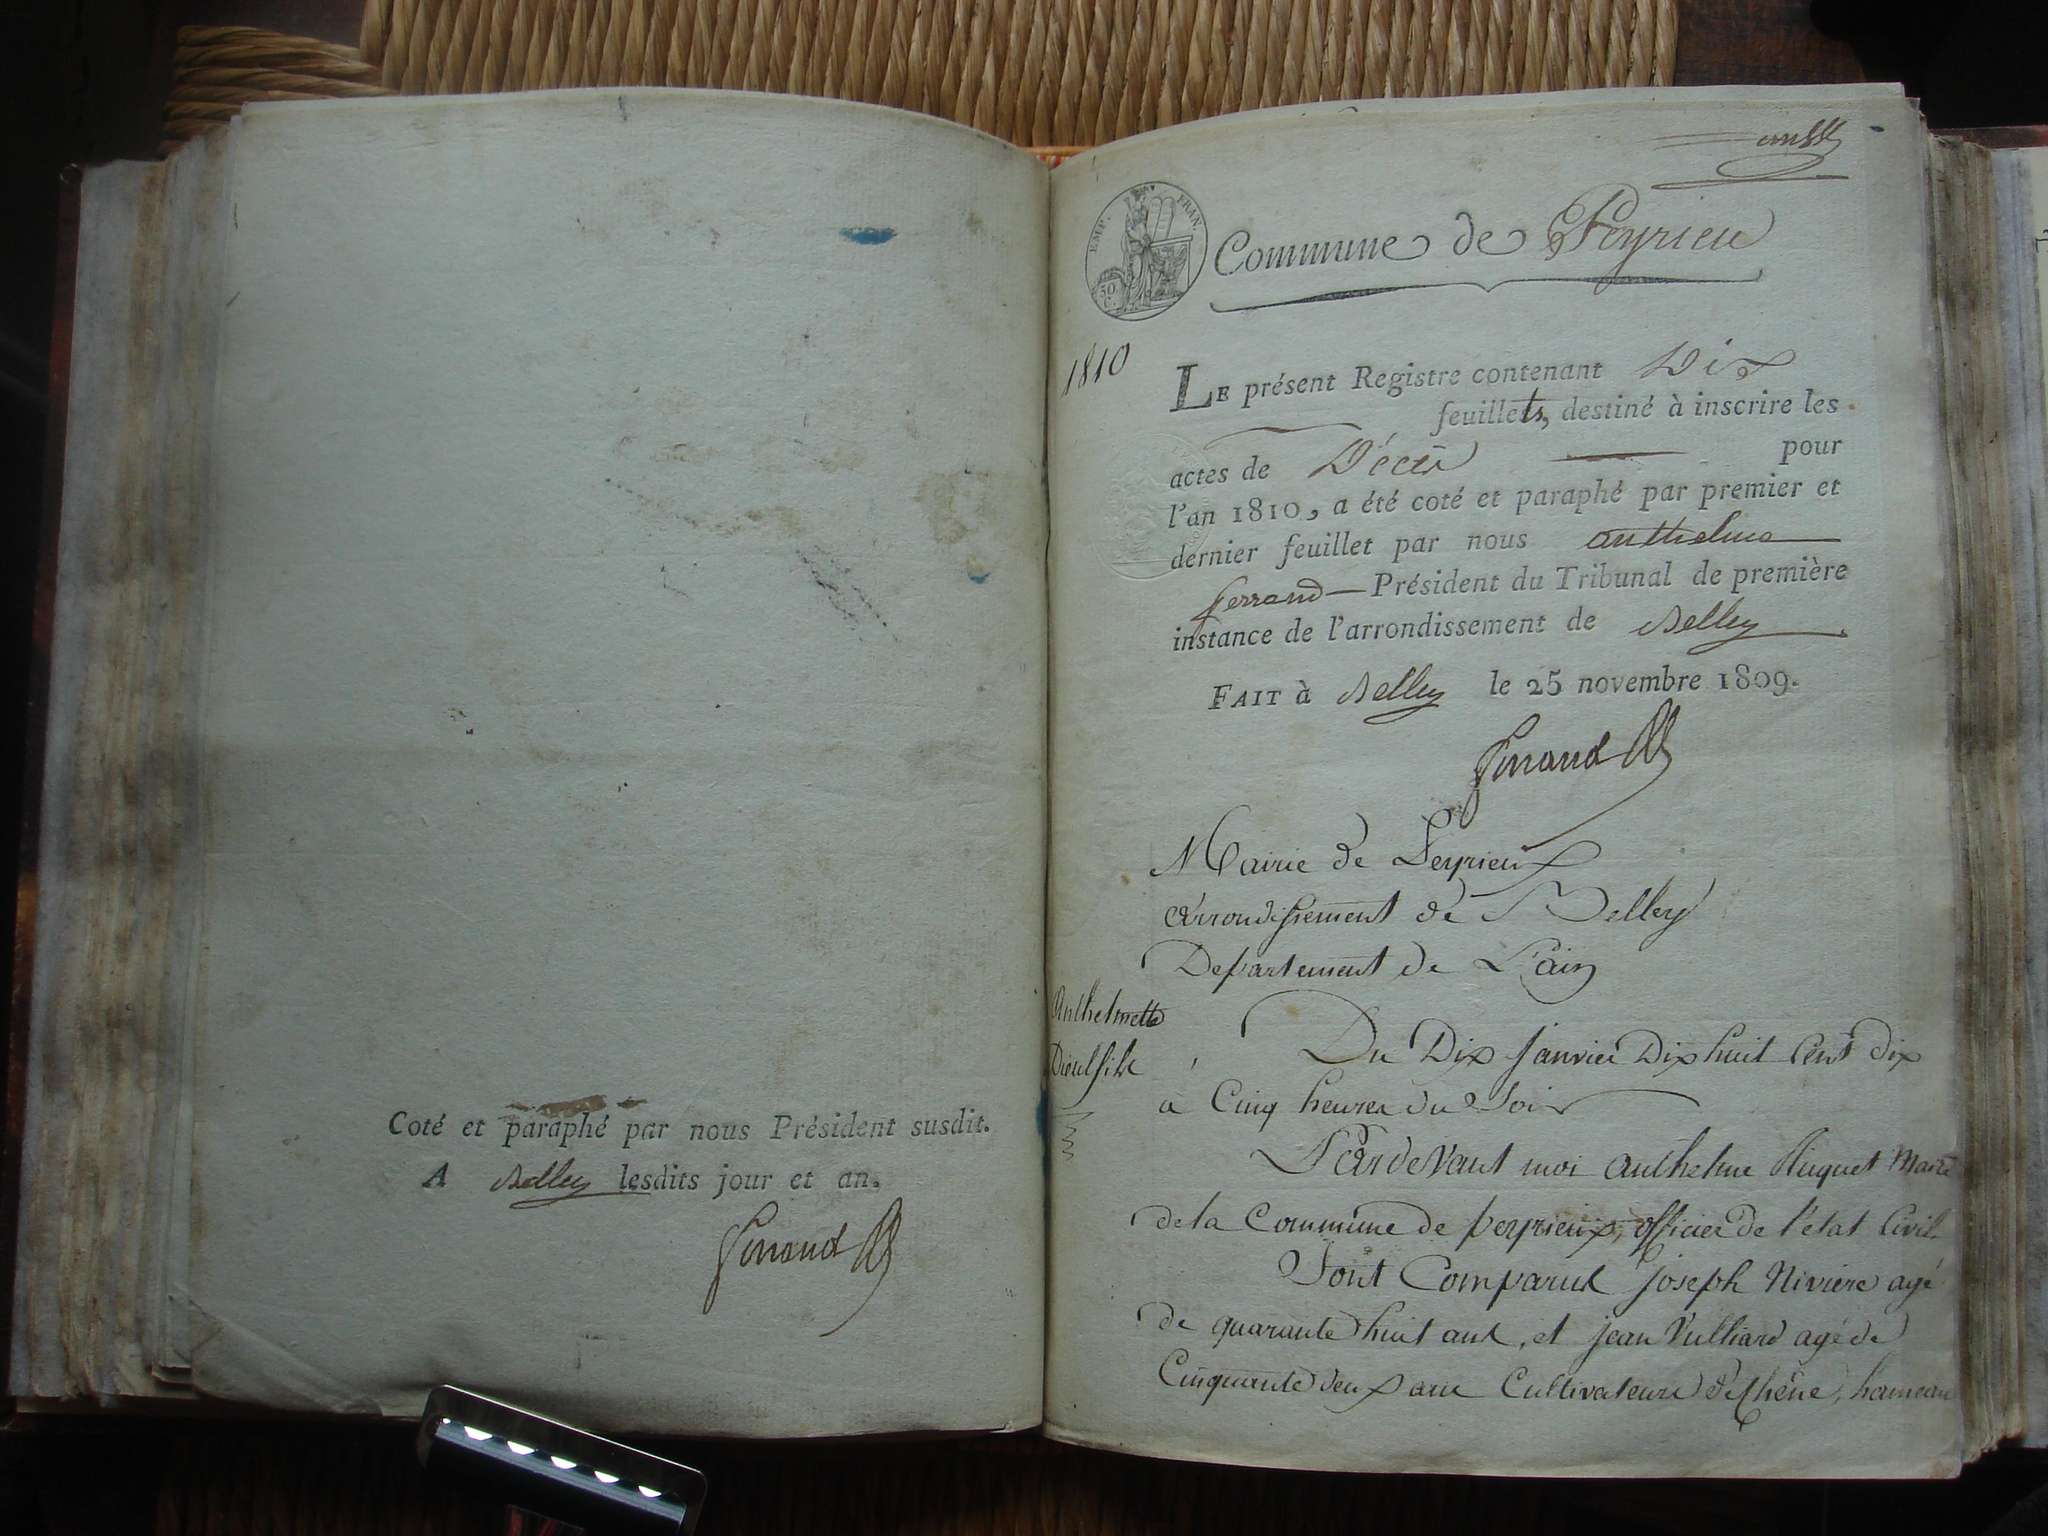 Coté et paraphé par nous Président susdit.
A Belley lesdits jour et an.
Ferrand
EMP. FRAN.
50 C.
Commune de Peyrieu
1810
LE présent Registre contenant Dix
feuillets, destiné à inscrire les
actes de Décès pour
l'an 1810, a été coté et paraphé par premier et
dernier feuillet par nous anthelme
ferrand Président du Tribunal de première
instance de l'arrondissement de Belley
FAIT à Belley le 25 novembre 1809.
Ferrand
Mairie de Peyrieux
Arrondissement de Belley
Departement de L'ain
Anthelmette
Dieulfils
Du Dix Janvier Dix huit Cent dix
à Cinq heures du Soir
Pardevant moi anthelme Huquet Maire
de la Commune de peyrieux, officier de l'état Civil
Sont Comparus joseph Nivière agé
de quarante huit ans, et jean Vulliard agé de
Cinquante deux ans Cultivateurs de Chêne, hameau